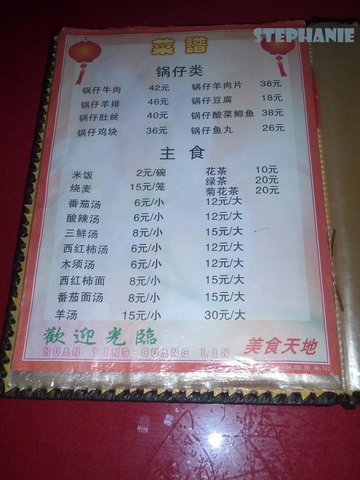 STEPHANIE
菜譜
锅仔类
锅仔牛肉 42元 锅仔羊肉片 38元
锅仔羊排 46元 锅仔豆腐 18元
锅仔肚丝 40元 锅仔酸菜鲫鱼 38元
锅仔鸡块 36元 锅仔鱼丸 26元
主食
米饭 2元/碗 花茶 10元
烧麦 15元/笼 绿茶 20元
菊花茶 20元
番茄汤 6元/小 12元/大
酸辣汤 6元/小 12元/大
三鲜汤 8元/小 15元/大
西红柿汤 6元/小 12元/大
木须汤 6元/小 12元/大
西红柿面 8元/小 15元/大
番茄面汤 8元/小 15元/大
羊汤 15元/小 30元/大
歡迎光臨
HUAN YING GUANG LIN
美食天地